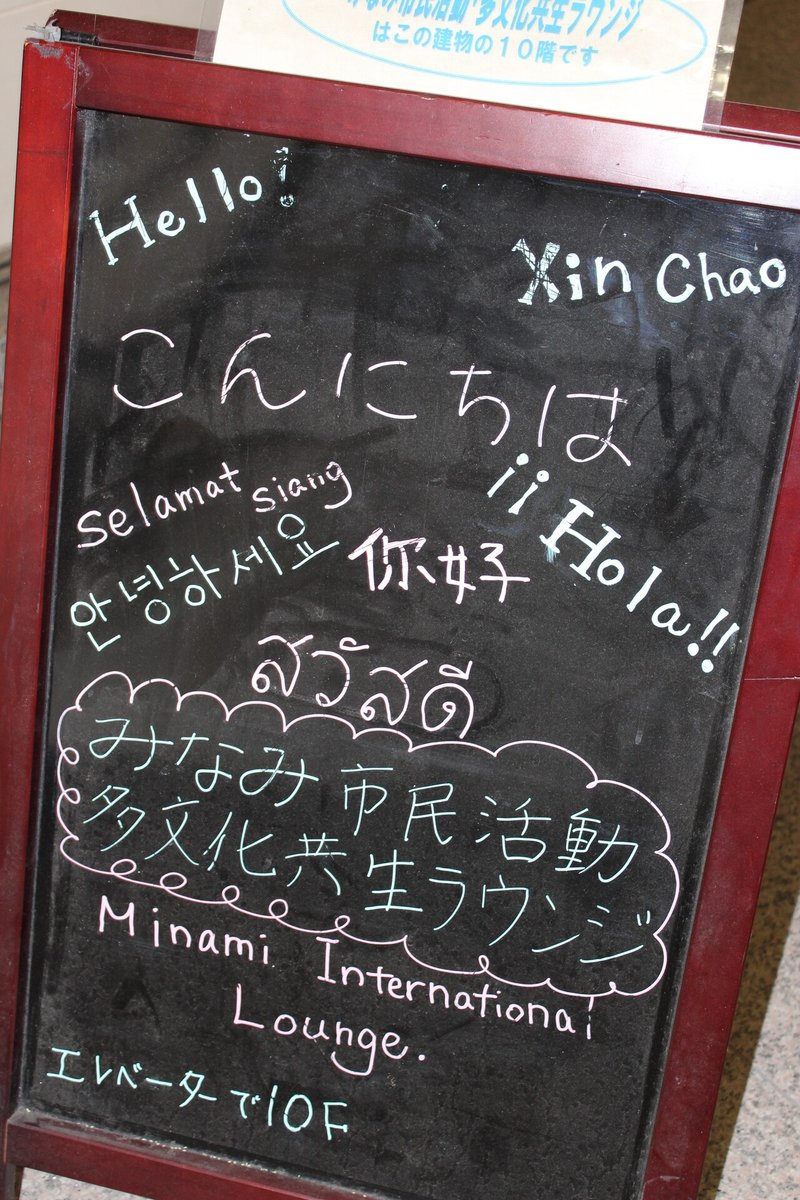 なみ市民活動・多文化共生ラウンジ
はこの建物の10階です
Hello!
Xin Chao
こんにちは
selamat siang
¡¡Hola!!
안녕하세요
你好
สวัสดี
みなみ市民活動
多文化共生ラウンジ
Minami International
Lounge.
エレベーターで10F